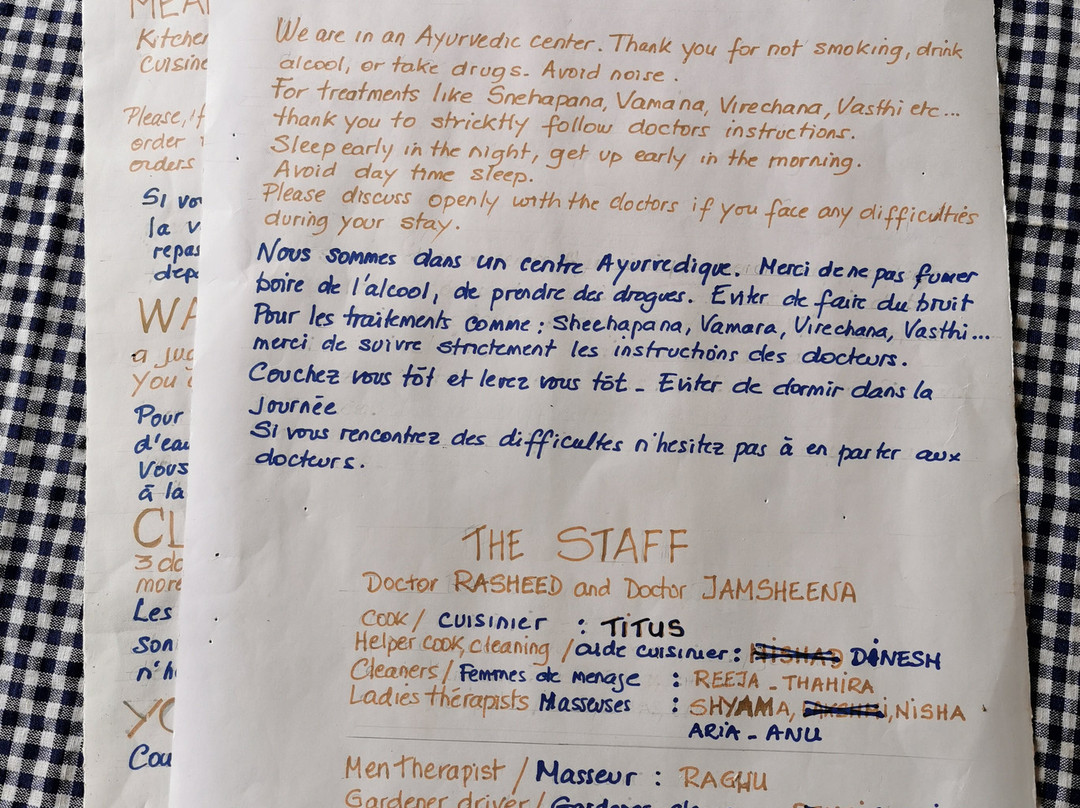 MEA
Kitchen
Cuisine
Please, if
order
orders
Si vo
la v
repas
depa
WA
a jug
You
Pour
d'eau
Vous
à la
CL
3 da
more
Les
son
n'h
YO
Cou
We are in an Ayurvedic center. Thank you for not smoking, drink
alcool, or take drugs. Avoid noise.
For treatments like Snehapana, Vamana, Virechana, Vasthi etc...
thank you to stricktly follow doctors instructions.
Sleep early in the night, get up early in the morning.
Avoid day time sleep.
Please discuss openly with the doctors if you face any difficulties
during your stay.
Nous sommes dans un centre Ayurvedique. Merci de ne pas fumer
boire de l'alcool, de prendre des drogues. Eviter de faire du bruit
Pour les traitements comme : Shechapana, Vamara, Virechana, Vasthi...
merci de suivre strictement les instructions des docteurs.
Couchez vous tôt et levez vous tôt - Eviter de dormir dans la
Journée
Si vous rencontrez des difficultes n'hesitez pas à en parler aux
docteurs.
THE STAFF
Doctor RASHEED and Doctor JAMSHEENA
Cook / cuisinier : TITUS
Helper cook, cleaning / aide cuisinier : NISHAD DINESH
Cleaners / Femmes de menage : REEJA - THAHIRA
Ladies thérapists Masseuses : SHYAMA, NISHA
ARIA - ANU
Men Therapist / Masseur : RAGHU
Gardener driver /